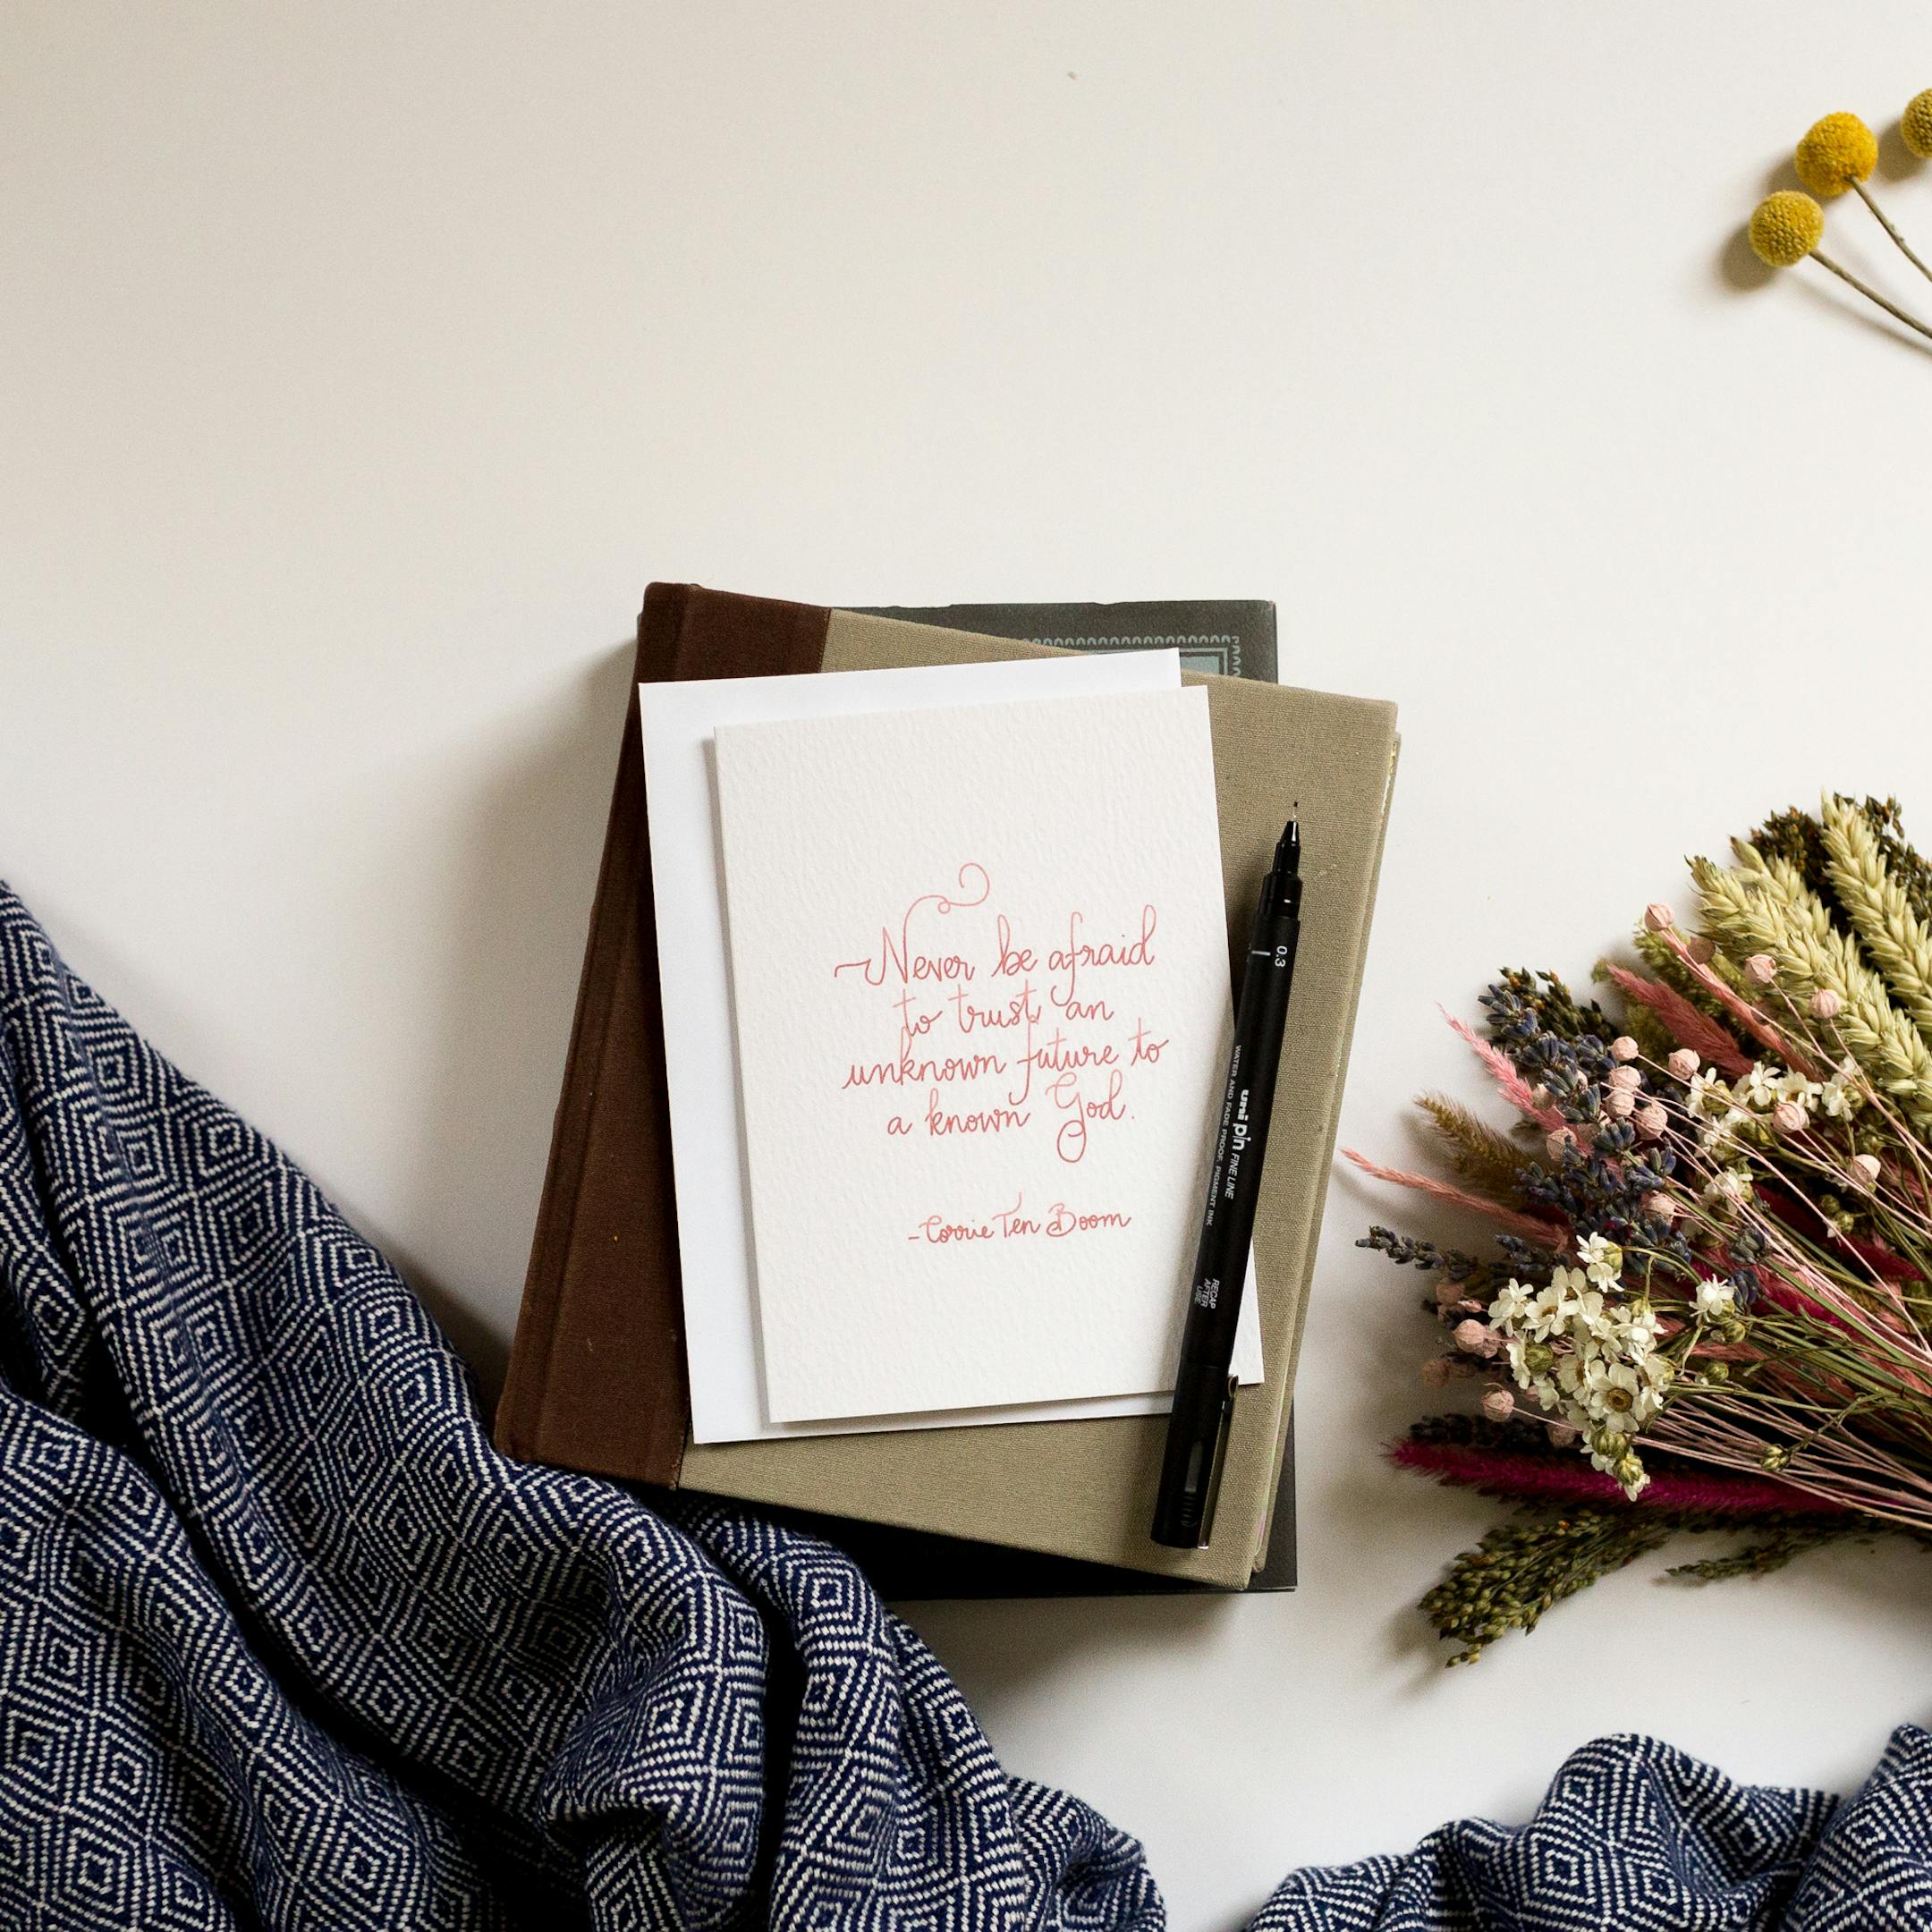 Never be afraid
to trust an
unknown future to
a known God.
-Corrie Ten Boom
0.3
uni pin FINE LINE
WATER AND FADE PROOF, PIGMENT INK
RECAP
AFTER
USE